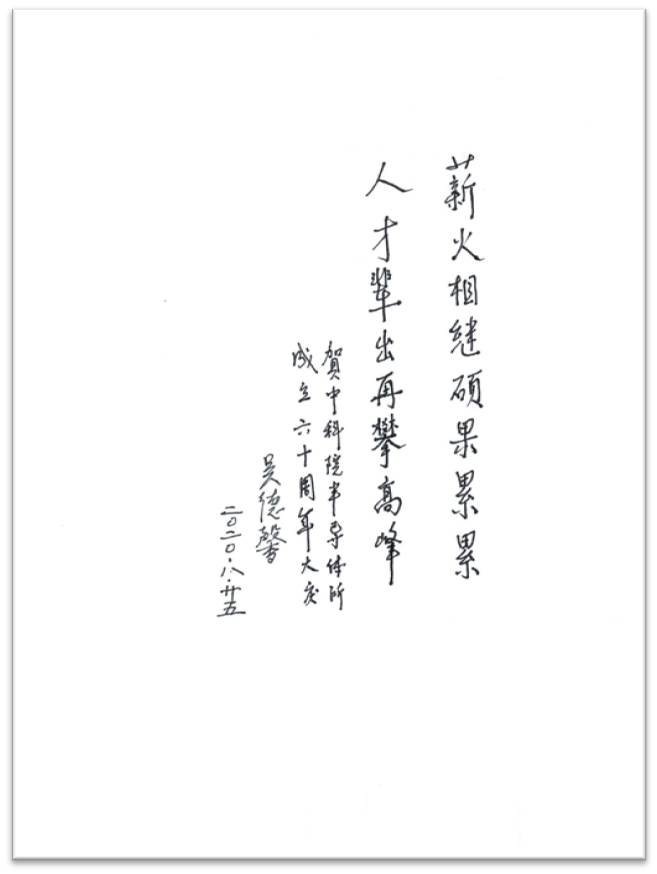 薪火相继硕果累累
人才辈出再攀高峰
贺中科院半导体所
成立六十周年大庆
吴德馨
二〇二〇.八.廿五